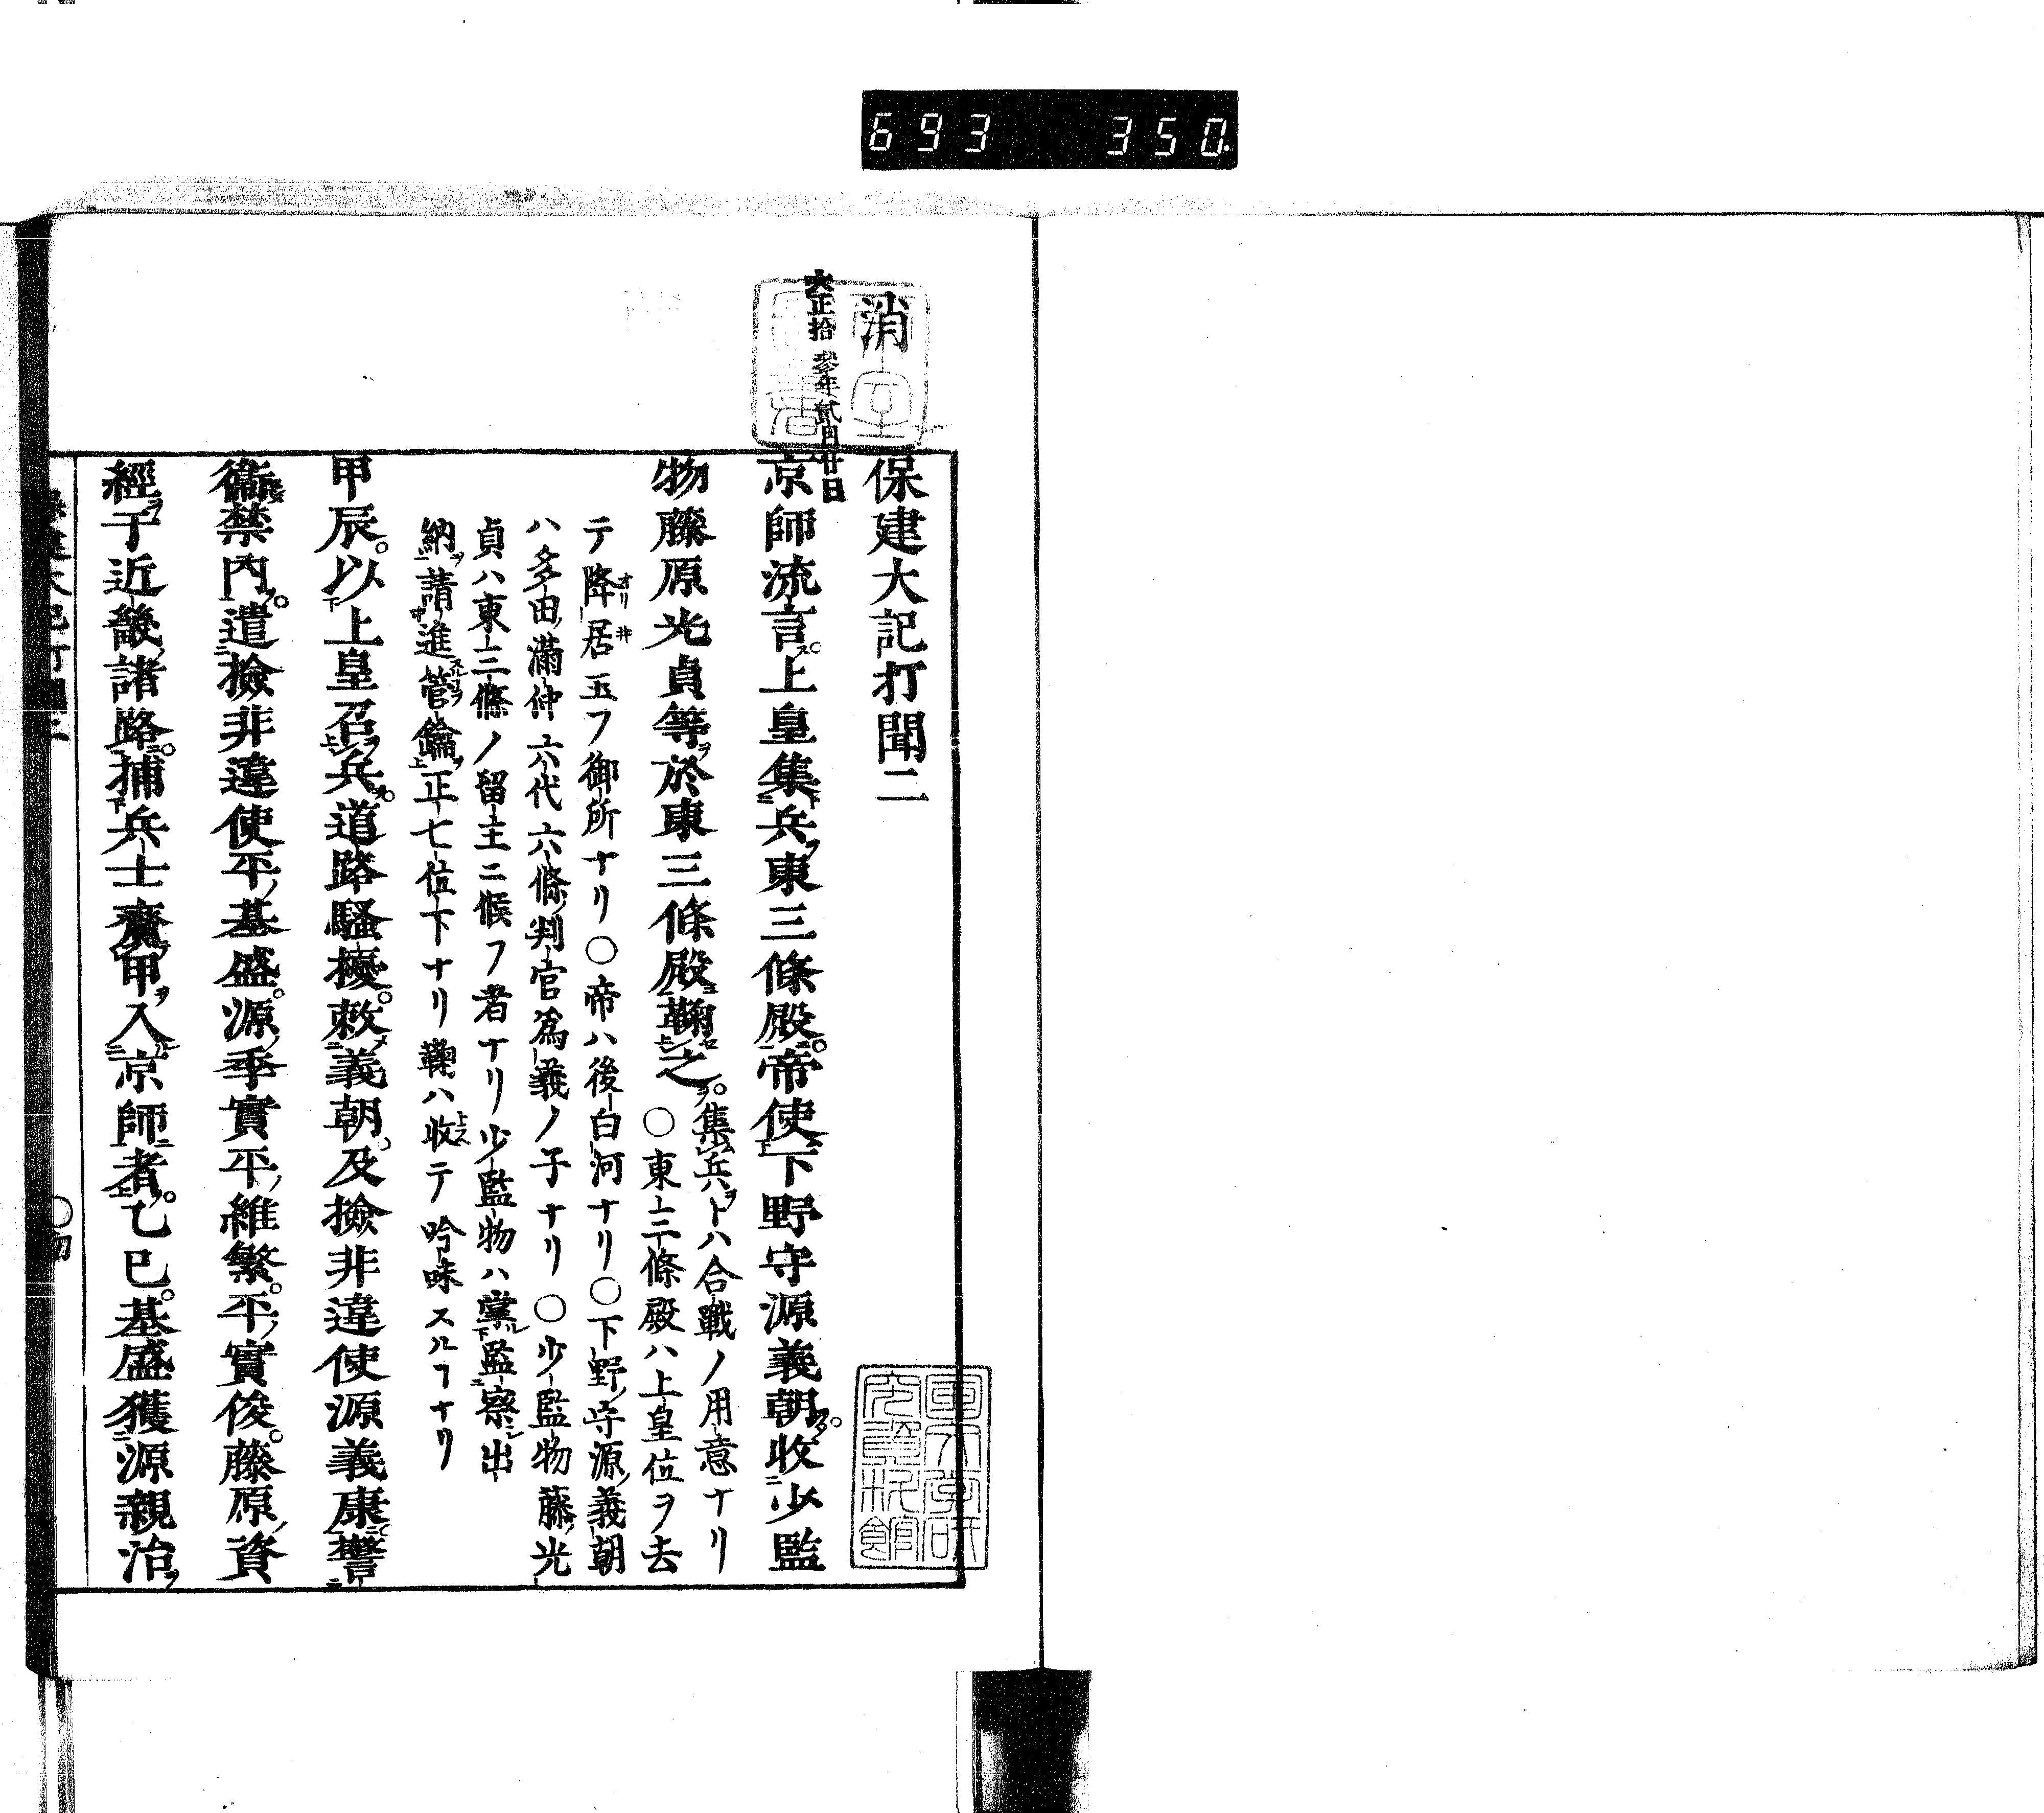 693 350.
消
大正拾參年貳月廿日
保建大記打聞二
京師流言。上皇集兵東三條殿。帝使下野守源義朝。收少監
物藤原光貞等於東三條殿鞠之。集兵トハ合戰ノ用意ナリ
○東三條殿ハ上皇位ヲ去
テ降居玉フ御所ナリ○帝ハ後白河ナリ○下野守源義朝
ハ多田滿仲六代六條判官爲義ノ子ナリ○少監物藤光
貞ハ東三條ノ留主ニ候フ者ナリ少監物ハ掌監察出
納請進管鑰正七位下ナリ鞠ハ收テ吟味スルヿナリ
甲辰。以上皇召兵。道路騷擾。敕義朝及撿非違使源義康警
衞禁内。遣撿非違使平基盛。源季實平維繁。平實俊。藤原資
經于近畿諸路。捕兵士齎甲入京師者。乙巳。基盛獲源親治